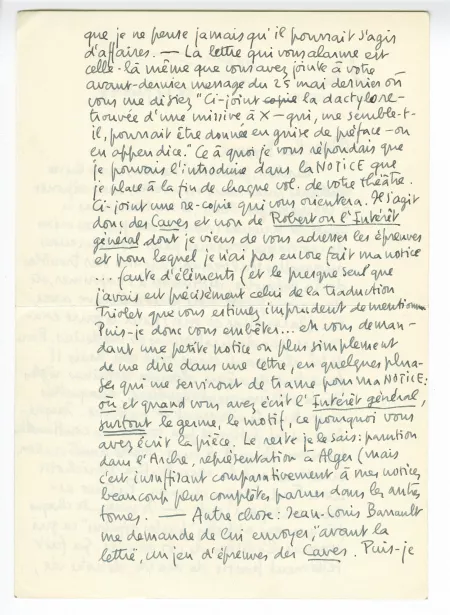 que je ne pense jamais qu'il pourrait s'agir
d'affaires. — La lettre qui vous alarme est
celle-là même que vous avez jointe à votre
avant-dernier message du 25 mai dernier où
vous me disiez "Ci-joint copie la dactylo re-
trouvée d'une missive à X — qui, me semble-t-
il, pourrait être donnée en guise de préface — ou
en appendice." Ce à quoi je vous répondais que
je pouvais l'introduire dans la NOTICE que
je place à la fin de chaque vol. de votre théâtre.
Ci-joint une re-copie qui vous orientera. Il s'agit
donc des Caves et non de Robert ou l'Intérêt
général dont je viens de vous adresser les épreuves
et pour lequel je n'ai pas encore fait ma notice
... faute d'éléments (et le presque seul que
j'avais est précisément celui de la traduction
Triolet que vous estimez imprudent de mentionner.
Puis-je donc vous embêter... en vous deman-
dant une petite notice ou plus simplement
de me dire dans une lettre, en quelques phra-
ses qui me serviront de trame pour ma NOTICE:
où et quand vous avez écrit l'Intérêt général,
surtout le germe, le motif, ce pourquoi vous
avez écrit la pièce. Le reste je le sais: parution
dans l'Arche, représentation à Alger (mais
c'est insuffisant comparativement à mes notices
beaucoup plus complètes parues dans les autres
tomes. — Autre chose: Jean-Louis Barrault
me demande de lui envoyer, "avant la
lettre", un jeu d'épreuves des Caves. Puis-je